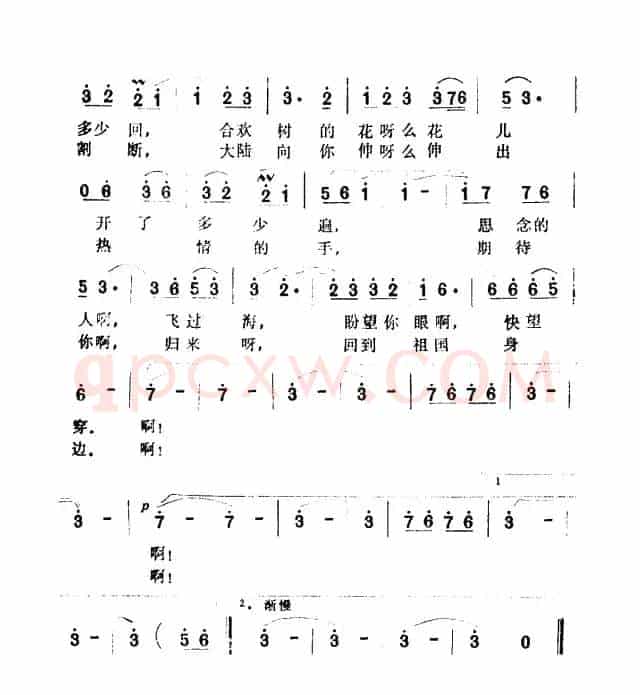 3 2 2 1 | 1 2 3 | 3· 2 | 1 2 2 3 3 7 6 | 5 3·
多少回， 合欢 树 的 花呀么花 儿
割 断， 大陆 向 你 伸呀么伸 出
0 6 3 6 | 6 3 2 1 | 5 6 1 | 1 - | 1 7 7 6
开 了 多 少 遍， 思 念 的
热 情 的 手， 期 待
5 3· | 3 6 5 3 | 3 2· | 2 3 3 2 | 1 6· | 6 6 6 5
人啊， 飞过 海， 盼望你 眼啊， 快望
你啊， 归来 呀， 回到 祖国 身
qpcxw.COM
6 - | 7 - | 7 - | 3 - | 3 - | 7 6 7 6 | 3 -
穿。 啊！
边。 啊！
1
3 - | p 7 - | 7 - | 3 - | 3 | 7 6 7 6 | 3 -
啊！
啊！
2。渐慢
3 - | 3 ( 5 6 :| 3 - | 3 - | 3 - | 3 0 ‖